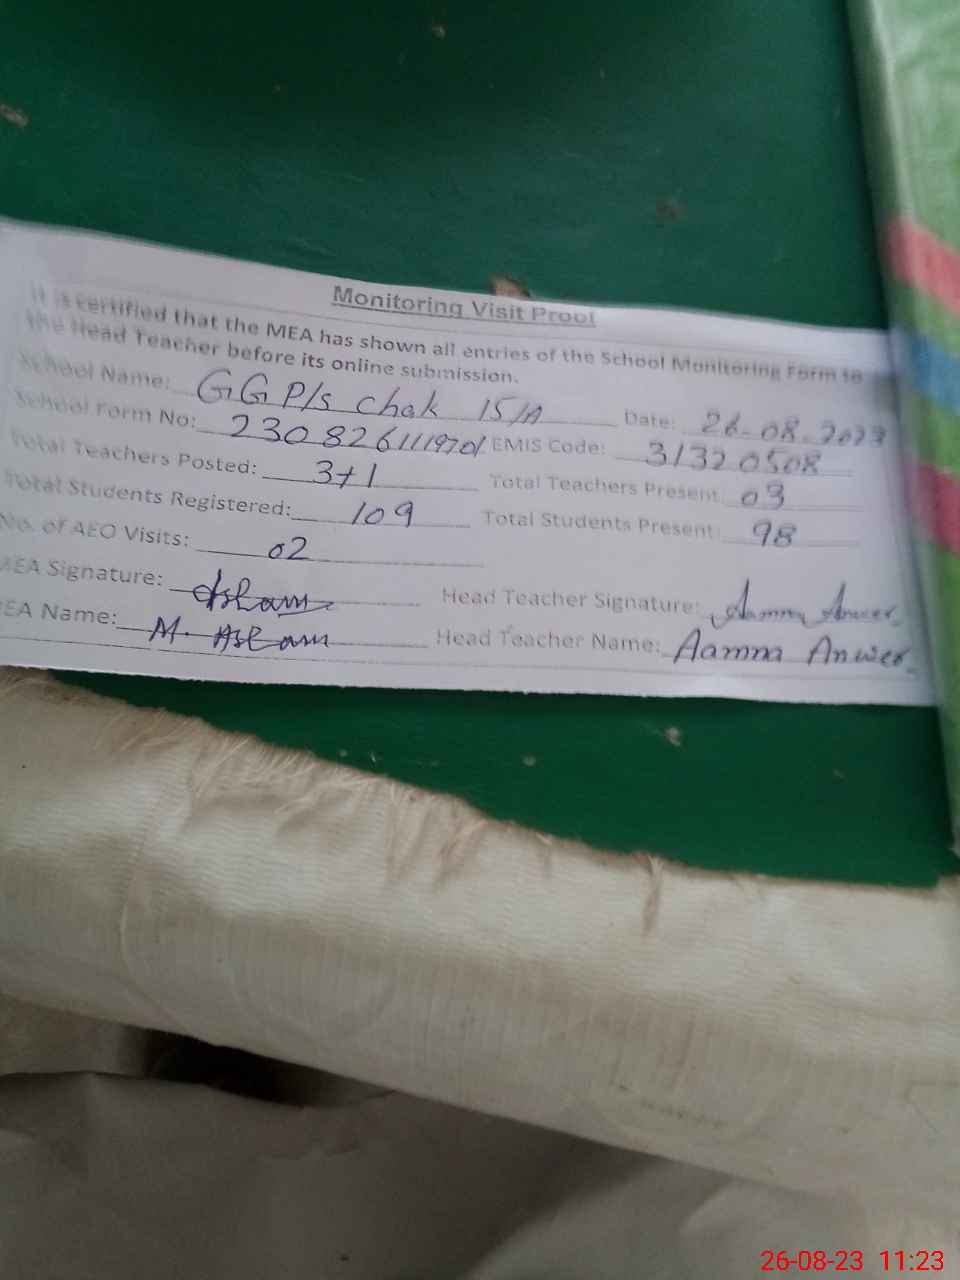 Monitoring Visit Proof
It is certified that the MEA has shown all entries of the School Monitoring Form to
the Head Teacher before its online submission.
School Name: GG P/s Chak 15/A Date: 26-08-2023
School Form No: 230826111970/ EMIS Code: 31320508
Total Teachers Posted: 3+1 Total Teachers Present: 03
Total Students Registered: 109 Total Students Present: 98
No. of AEO Visits: 02
MEA Signature: Aslam Head Teacher Signature: Aamna Anwer
MEA Name: M. Aslam Head Teacher Name: Aamna Anwer
26-08-23 11:23